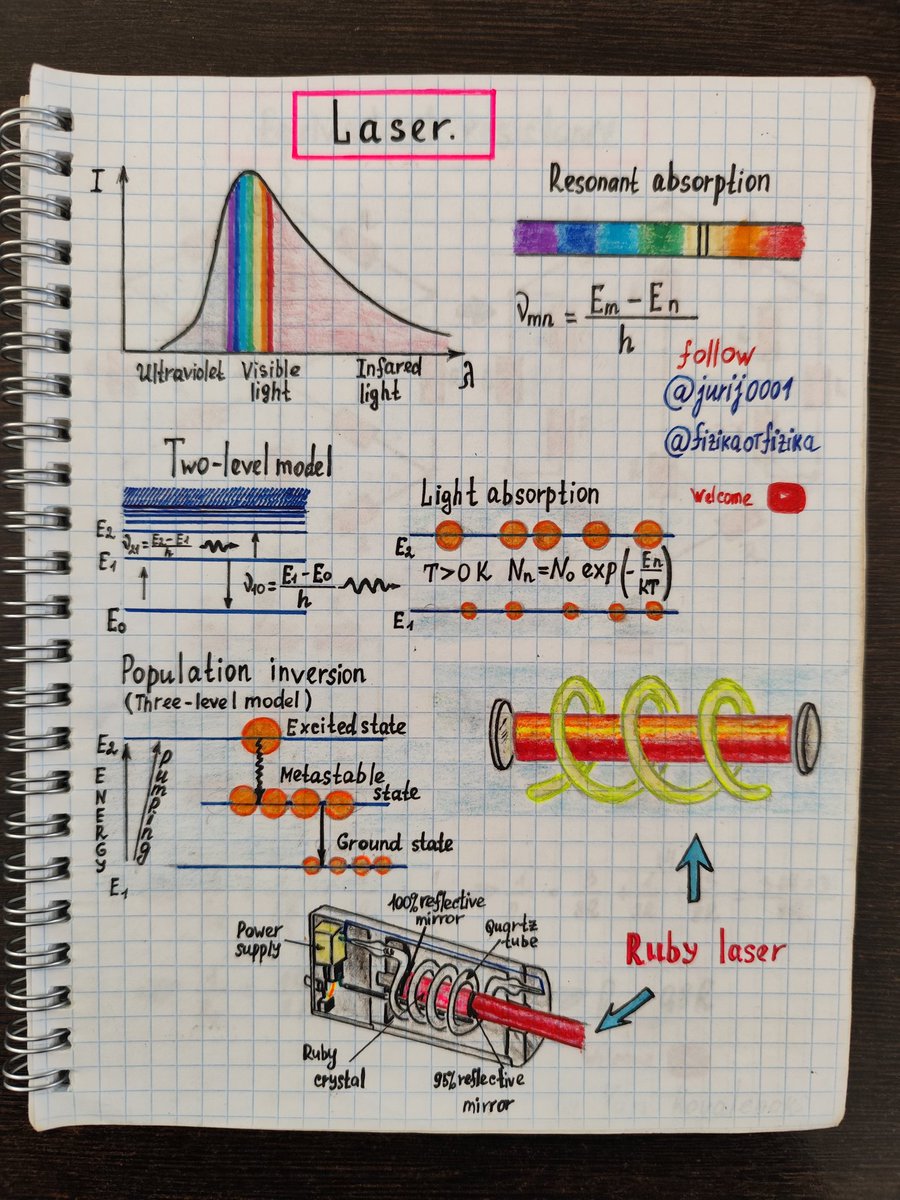 Laser.
I
Ultraviolet Visible light
Infared light
λ
Resonant absorption
νmn = Em - En / h
follow
@jurij0001
@fizikaoTfizika
Welcome
Two-level model
E2
ν21 = E2 - E1 / h
E1
ν10 = E1 - E0 / h
E0
Light absorption
E2
T>0 K Nn = No exp(- En / KT)
E1
Population inversion
(Three-level model)
E2
Excited state
Metastable state
Ground state
ENERGY
Pumping
E1
Power supply
100% reflective mirror
Quartz tube
Ruby crystal
95% reflective mirror
Ruby laser